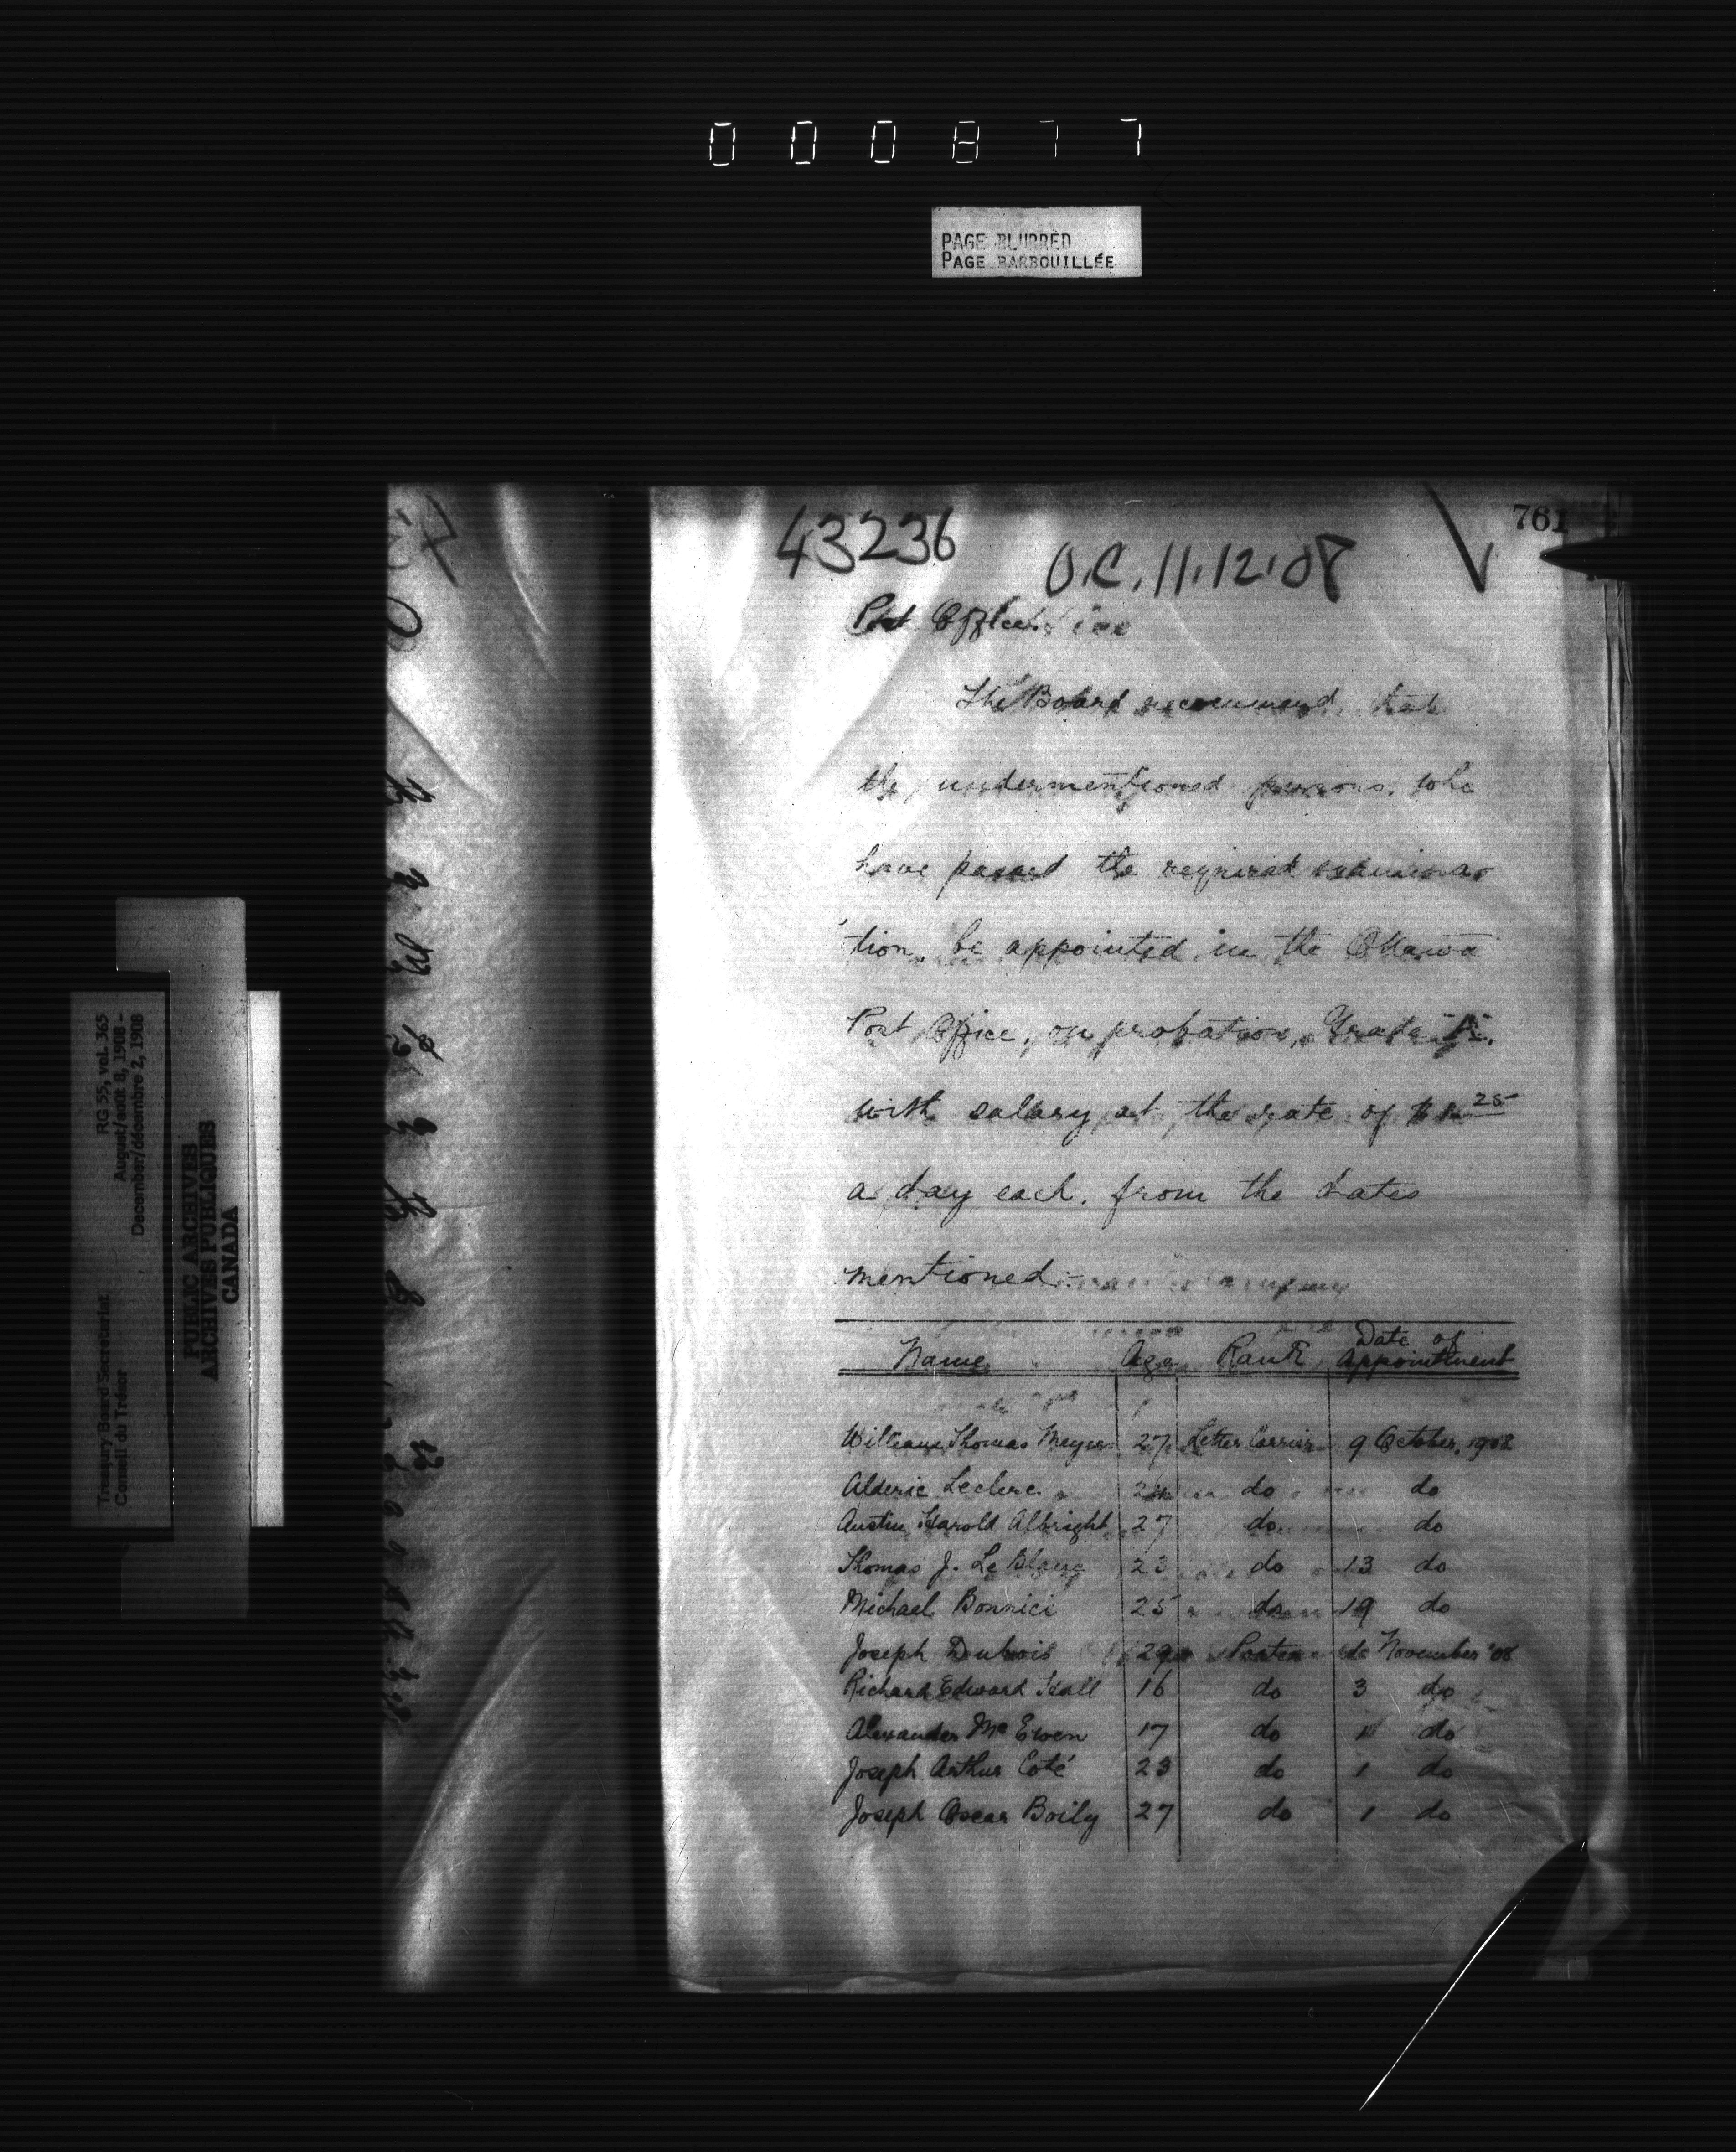 000877
PAGE BLURRED
PAGE BARBOUILLÉE
761
43236
O.C. 11.12.08
Post Office
The Board recommend that
the undermentioned persons, who
have passed the required examina-
tion, be appointed in the Ottawa
Post Office, on probation, Grade "A",
with salary at the rate of $1.25
a day each, from the dates
mentioned:-
Name Age Rank Date of Appointment
William Thomas Meyer 27 Letter Carrier 9 October, 1908
Alderic Leclerc do do
Austin Harold Albright 27 do do
Thomas J. Le Blanc 23 do 13 do
Michael Bonnici 25 do 19 do
Joseph Dubois 29 Porter November '08
Richard Edward Hall 16 do 3 do
Alexander McEwen 17 do do
Joseph Arthur Coté 23 do 1 do
Joseph Oscar Boily 27 do 1 do
Treasury Board Secretariat RG 55, vol. 365
Conseil du Trésor August/août 8, 1908 -
December/décembre 2, 1908
PUBLIC ARCHIVES
ARCHIVES PUBLIQUES
CANADA